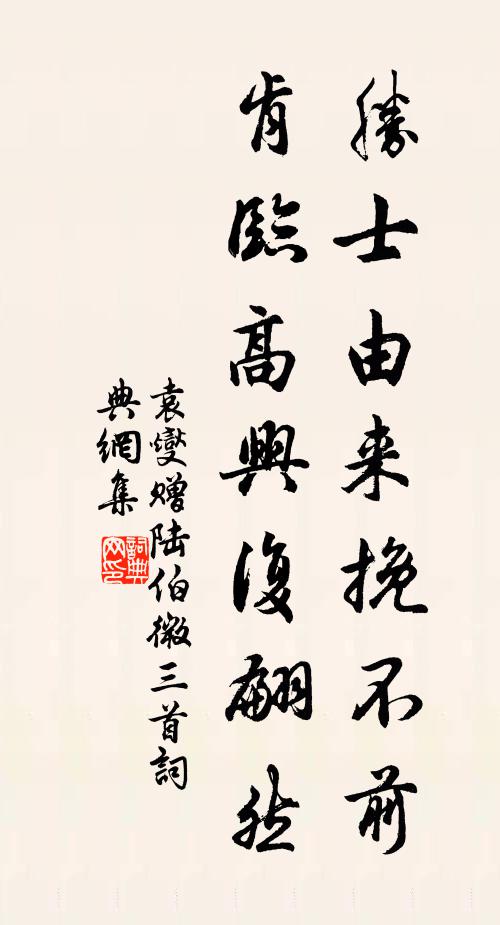 勝士由来挽不前
肯臨高興復翩然
袁燮赠陆伯微三首詞
典網集
詞典网印